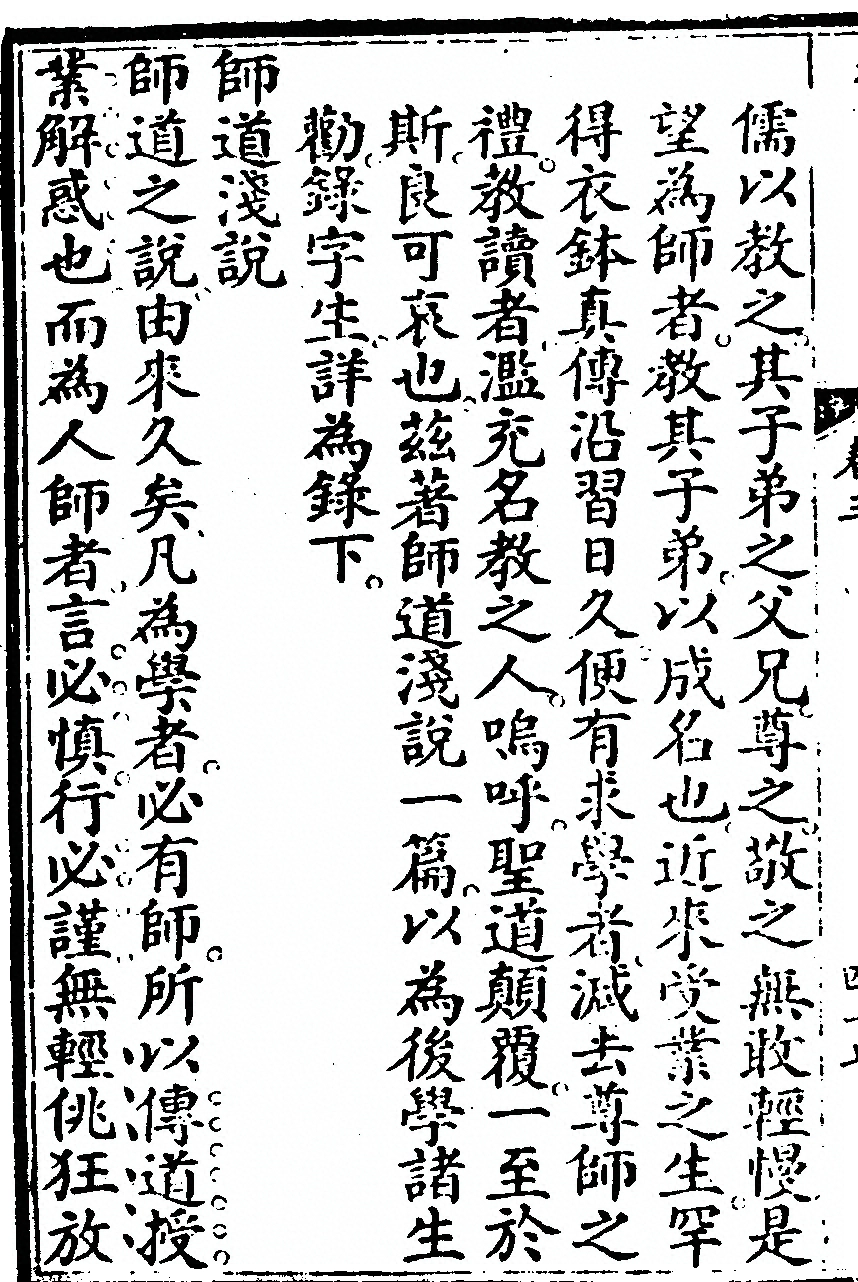 儒以教之其子弟之父兄尊之敬之無敢輕慢是
望為師者教其子弟以成名也近來受業之生罕
得衣鉢真傳沿習日久便有求學者滅去尊師之
禮教讀者濫充名教之人嗚呼聖道顛覆一至於
斯良可哀也茲著師道淺說一篇以為後學諸生
勸錄字生詳為錄下
師道淺說
師道之說由來久矣凡為學者必有師所以傳道授
業解惑也而為人師者言必慎行必謹無輕佻狂放